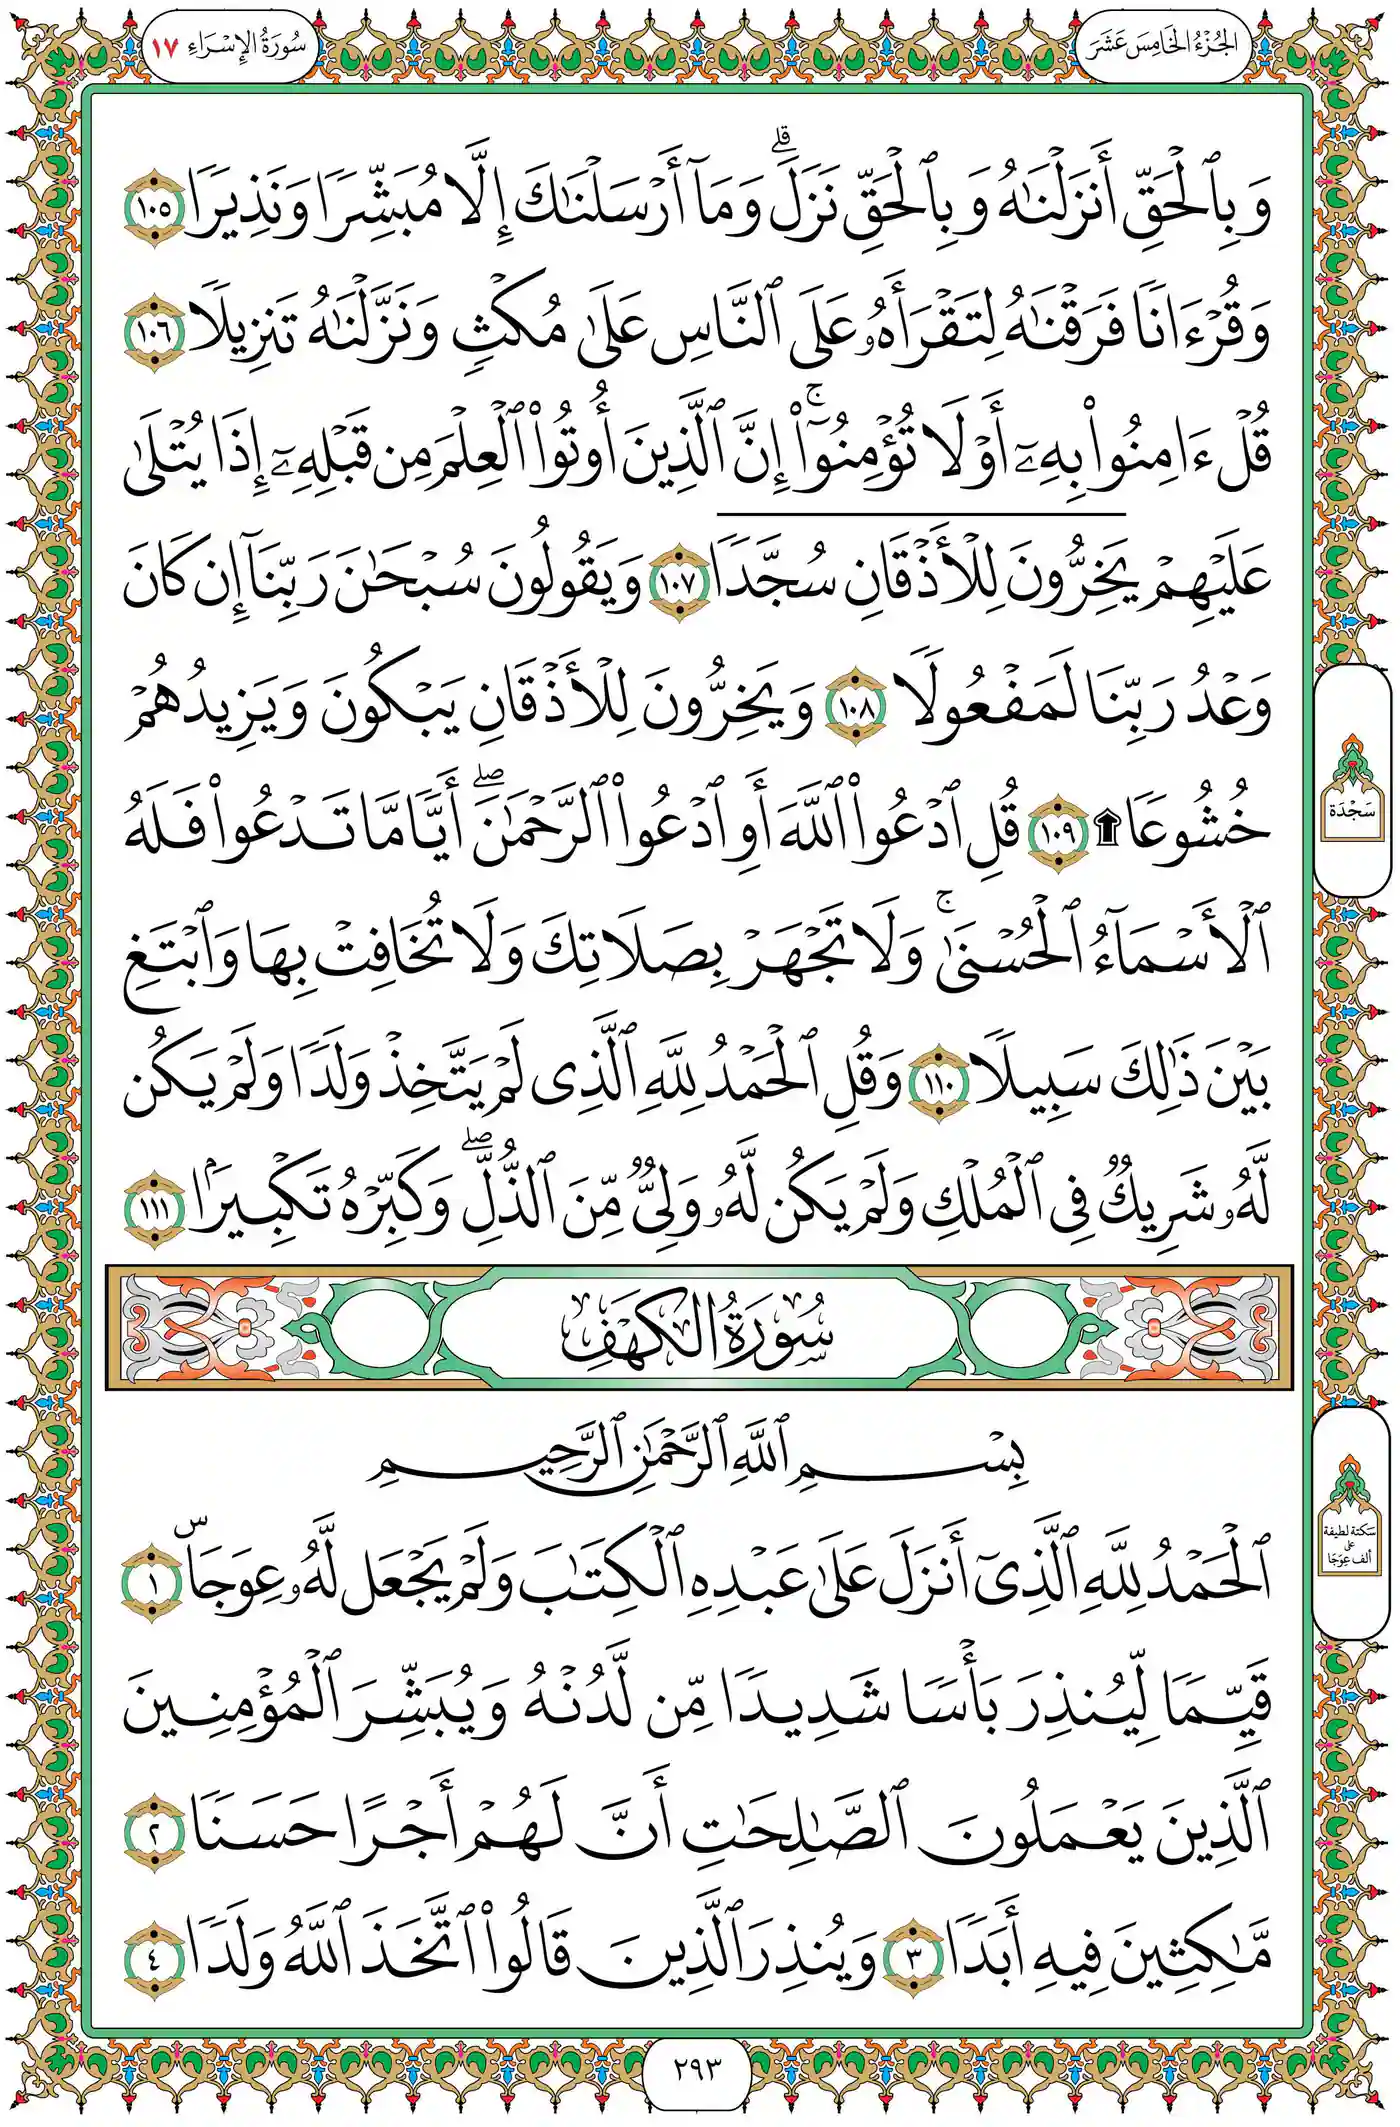 الجُزْءُ الخَامِسَ عَشَرَ
سُورَةُ الإِسْرَاءِ ١٧
وَبِٱلْحَقِّ أَنزَلْنَٰهُ وَبِٱلْحَقِّ نَزَلَ ۗ وَمَآ أَرْسَلْنَٰكَ إِلَّا مُبَشِّرًا وَنَذِيرًا ١٠٥
وَقُرْءَانًا فَرَقْنَٰهُ لِتَقْرَأَهُۥ عَلَى ٱلنَّاسِ عَلَىٰ مُكْثٍ وَنَزَّلْنَٰهُ تَنزِيلًا ١٠٦
قُلْ ءَامِنُوا۟ بِهِۦٓ أَوْ لَا تُؤْمِنُوٓا۟ ۚ إِنَّ ٱلَّذِينَ أُوتُوا۟ ٱلْعِلْمَ مِن قَبْلِهِۦٓ إِذَا يُتْلَىٰ
عَلَيْهِمْ يَخِرُّونَ لِلْأَذْقَانِ سُجَّدًا ١٠٧ وَيَقُولُونَ سُبْحَٰنَ رَبِّنَآ إِن كَانَ
وَعْدُ رَبِّنَا لَمَفْعُولًا ١٠٨ وَيَخِرُّونَ لِلْأَذْقَانِ يَبْكُونَ وَيَزِيدُهُمْ
خُشُوعًا ۩ ١٠٩ قُلِ ٱدْعُوا۟ ٱللَّهَ أَوِ ٱدْعُوا۟ ٱلرَّحْمَٰنَ ۖ أَيًّا مَّا تَدْعُوا۟ فَلَهُ
ٱلْأَسْمَآءُ ٱلْحُسْنَىٰ ۚ وَلَا تَجْهَرْ بِصَلَاتِكَ وَلَا تُخَافِتْ بِهَا وَٱبْتَغِ
بَيْنَ ذَٰلِكَ سَبِيلًا ١١٠ وَقُلِ ٱلْحَمْدُ لِلَّهِ ٱلَّذِى لَمْ يَتَّخِذْ وَلَدًا وَلَمْ يَكُن
لَّهُۥ شَرِيكٌ فِى ٱلْمُلْكِ وَلَمْ يَكُن لَّهُۥ وَلِىٌّ مِّنَ ٱلذُّلِّ ۖ وَكَبِّرْهُ تَكْبِيرًۢا ١١١
سُورَةُ الكَهْفِ
بِسْمِ ٱللَّهِ ٱلرَّحْمَٰنِ ٱلرَّحِيمِ
ٱلْحَمْدُ لِلَّهِ ٱلَّذِىٓ أَنزَلَ عَلَىٰ عَبْدِهِ ٱلْكِتَٰبَ وَلَمْ يَجْعَل لَّهُۥ عِوَجَا ۜ ١
قَيِّمًا لِّيُنذِرَ بَأْسًا شَدِيدًا مِّن لَّدُنْهُ وَيُبَشِّرَ ٱلْمُؤْمِنِينَ
ٱلَّذِينَ يَعْمَلُونَ ٱلصَّٰلِحَٰتِ أَنَّ لَهُمْ أَجْرًا حَسَنًا ٢
مَّٰكِثِينَ فِيهِ أَبَدًا ٣ وَيُنذِرَ ٱلَّذِينَ قَالُوا۟ ٱتَّخَذَ ٱللَّهُ وَلَدًا ٤
سَجْدَة
سَكتة لطيفة
على
ألف عِوَجَا
٢٩٣